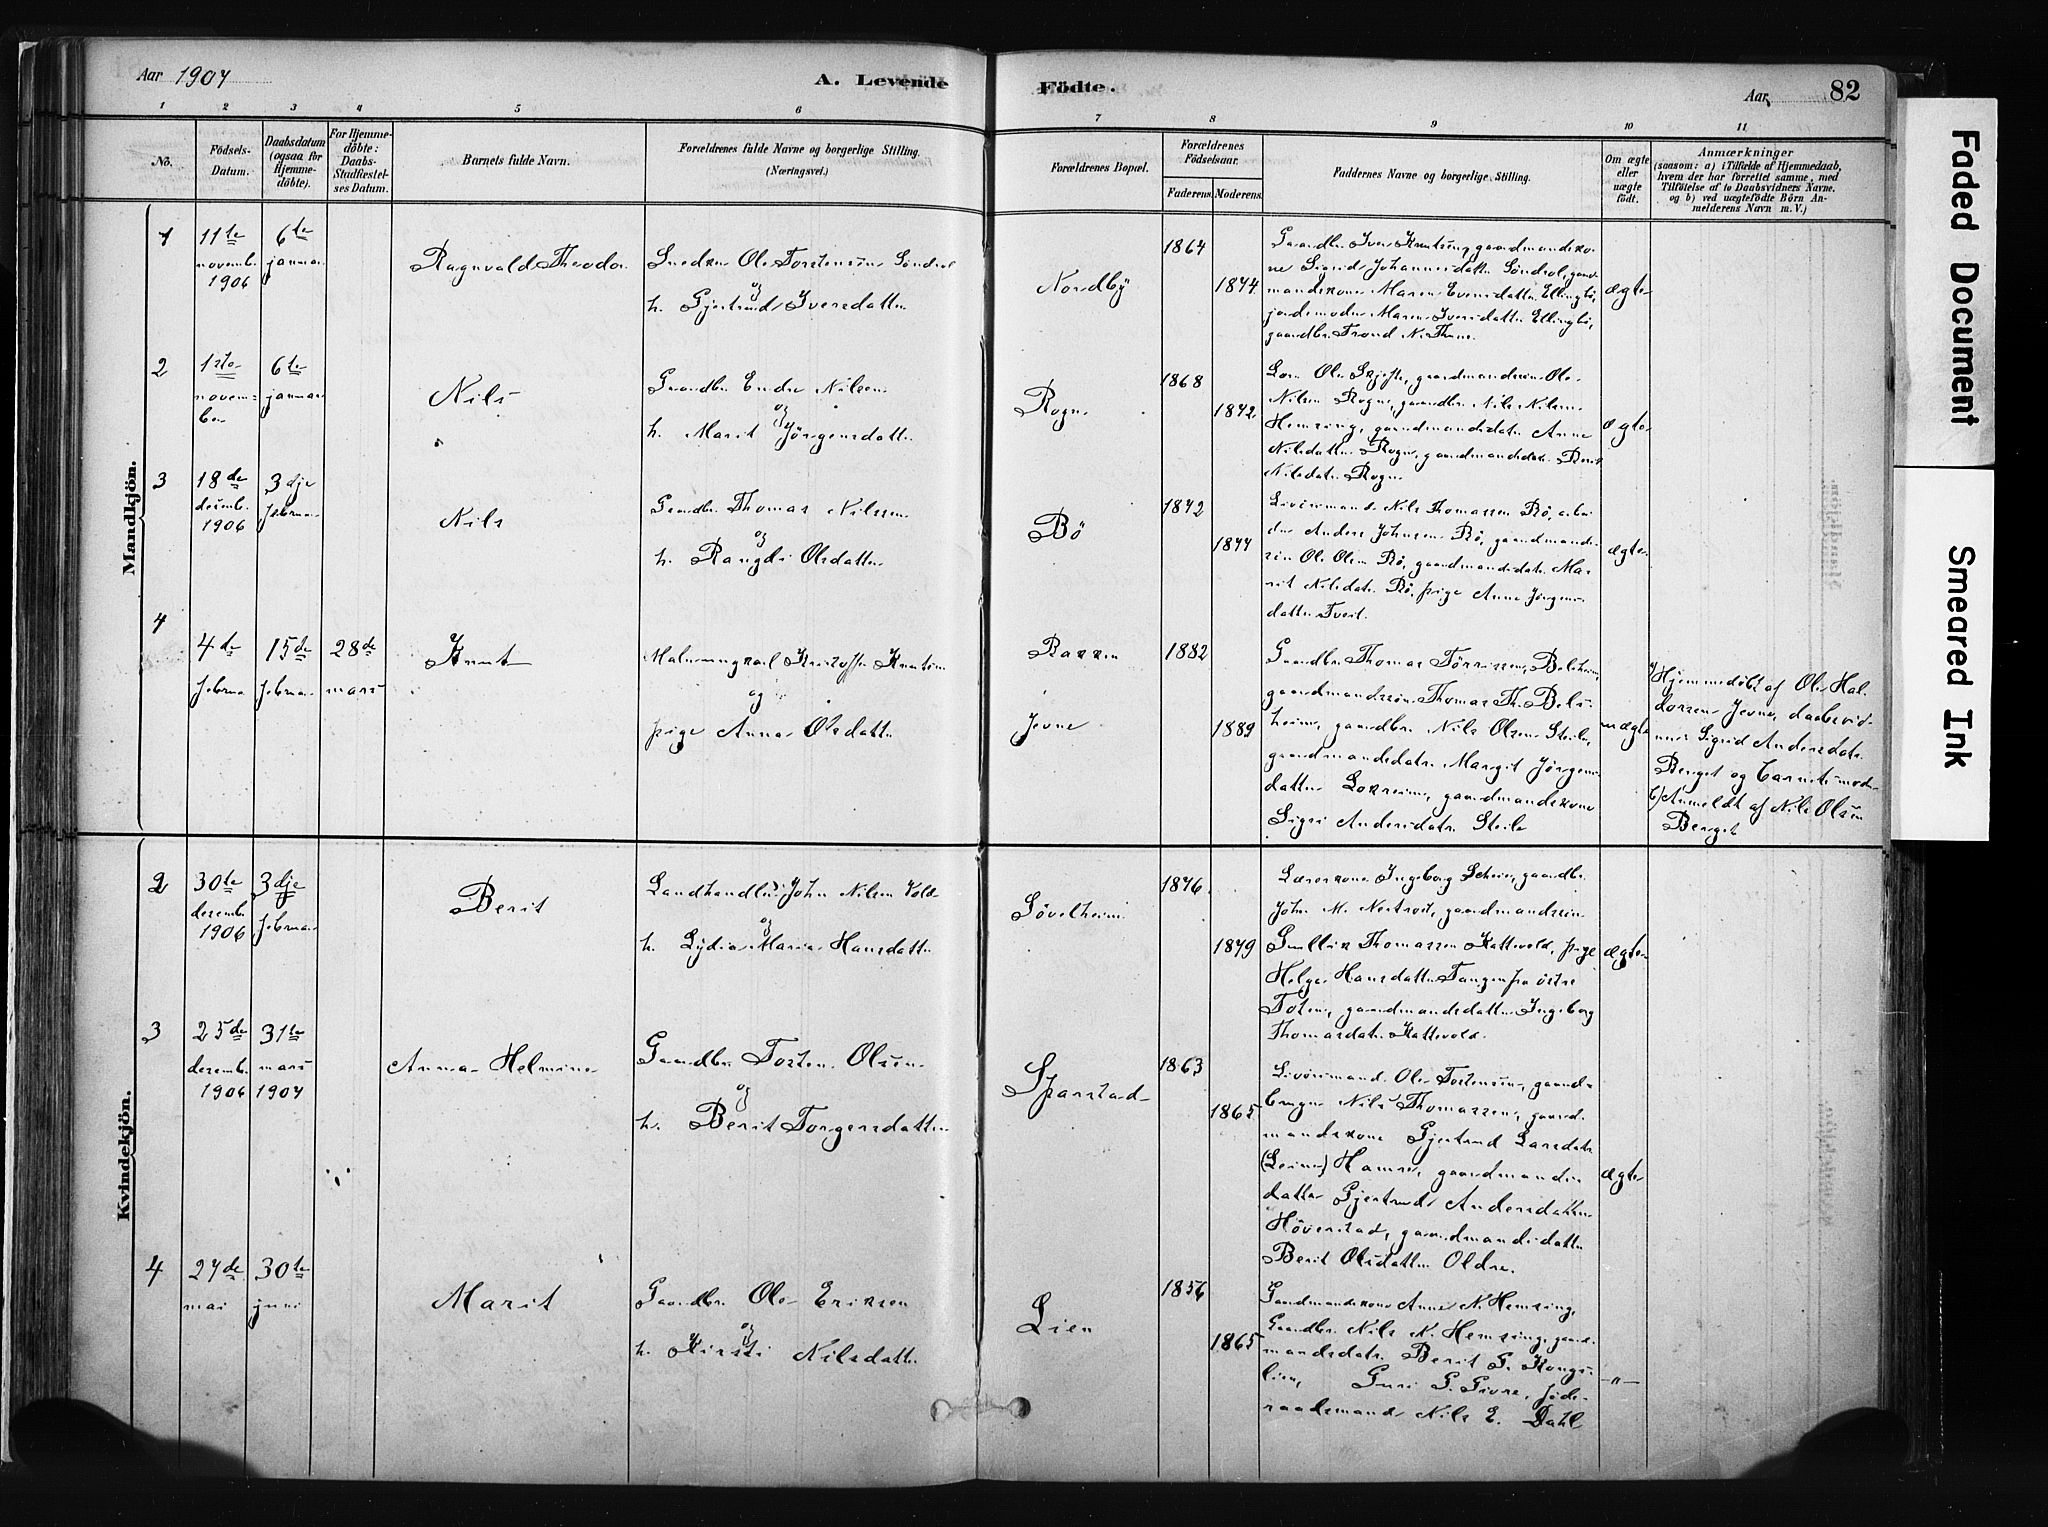 Aar 1907
A. Levende
Födte.
Aar
82
1 2 3 4 5 6 7 8 9 10 11
No.
Födsels-
Datum.
Daabsdatum
(ogsaa for
Hjemme-
döbte).
For Hjemme-
döbte:
Daabs-
Stadfæstel-
ses Datum.
Barnets fulde Navn.
Forældrenes fulde Navne og borgerlige Stilling.
(Næringsvei.)
Forældrenes Bopæl.
Forældrenes
Födselsaar.
Faderens.
Moderens.
Faddernes Navne og borgerlige Stilling.
Om ægte
eller
uægte
födt.
Anmærkninger
(saasom: a) i Tilfælde af Hjemmedaab,
hvem der har forrettet samme, med
Tilföielse af to Daabsvidners Navne.
og b) ved uægtefödte Börn An-
melderens Navn m. V.)
Mandkjön.
1
11te
novemb.
1906
6te
januar
Ragnvald Theodor
Snedker Ole Torstensen Söndrol
og
h. Gjertrud Iversdatter
Nordby
1864
1874
Gaardbr. Iver Knutsen, gaardmandsko-
ne Sigrid Johannesdatter Söndrol, gaard-
mandskone Maren Evensdatter Ellingbö,
jordmoder Maren Iversdatter Ellingbö,
gaardbr. Trond N. Thune.
ægte
2
1ste
novem-
ber
6te
januar
Nils
Gaardbr. Endre Nilsen
og
h. Marit Jörgensdatter
Rogn
1868
1872
Ole
Nilsen Rogne, gaardbr. Nils Nilsen
Hemsing, gaardmandsdatr. Anne
Nilsdatter Rogne, gaardmandsdatr. Berit
Nilsdatr. Rogn
ægte
3
18de
desemb.
1906
3dje
februar
Nils
Gaardbr. Thomas Nilssen
og
h. Rangdi Olsdatter
Bö
1872
1877
Livöresmand Nils Thomassen Bö, arbei-
der Anders Johnsen Bö, gaardmands-
sön Ole Olsen Bö, gaardmandsdatr. Ma-
rit Nilsdatr. Bö, pige Anne Jörgens-
datter Tveit.
ægte
4
4de
februar
15de
februar
28de
mars
Knut
Kristoffer Knutsen
og
pige Anna Olsdatter
Bakken
Jevne
1882
1889
Gaardbr. Thomas Törrissen Belsheim,
gaardmandssön Thomas Th. Bels-
heim, gaardbr. Nils Olsen Steile,
gaardmandsdatr. Margit Jörgens-
datter Lokreim, gaardmandskone
Sigri Andersdatr. Steile
uægte
a) Hjemmedöbt af Ole Hal-
dorsen Jevne, daabsvid-
ner Sigrid Andersdatr.
Berget og barnets moder
b) Anmeldt af Nils Olsen
Berget
Kvindekjön.
2
30te
desemb.
1906
3dje
februar
Berit
Landhandler John Nilsen Vold
og
h. Lydia Maria Hansdatter
Sövelheim
1876
1879
Lærerkone Ingeborg Scheie, gaardbr.
John M. Nestrost, gaardmandssön
Gullik Thomassen Kattevold, pige
Helga Hansdatter Tangen fra östre
Toten, gaardmandsdatter Ingeborg
Thomasdatr. Kattevold.
ægte
3
25de
desemb.
1906
31te
mars
1907
Anna Helmine
Gaardbr. Torsten Olsen
og
h. Berit Torgersdatter
Sparstad
1863
1865
Livöresmand Ole Torstensen, gaard-
bruger Nils Thomassen, gaard-
mandskone Gjertrud Larsdatr.
(Leine) Hamre, gaardmands-
datter Gjertrud Andersdatter
Höverstad, gaardmandsdatter
Berit Olsdatter Oldre.
ægte
4
27de
mai
30te
juni
Marit
Gaardbr. Ole Eriksen
og
h. Kirsti Nilsdatter
Lien
1856
1865
Gaardmandskone Anne N. Hemsing,
Gaardbr. Nils N. Hemsing, gaard-
mandsdatr. Berit G. Kongs-
lien, Guri G. Givre, föde-
raadsmand Nils E. Dahl
-"-
Faded Document
Smeared Ink